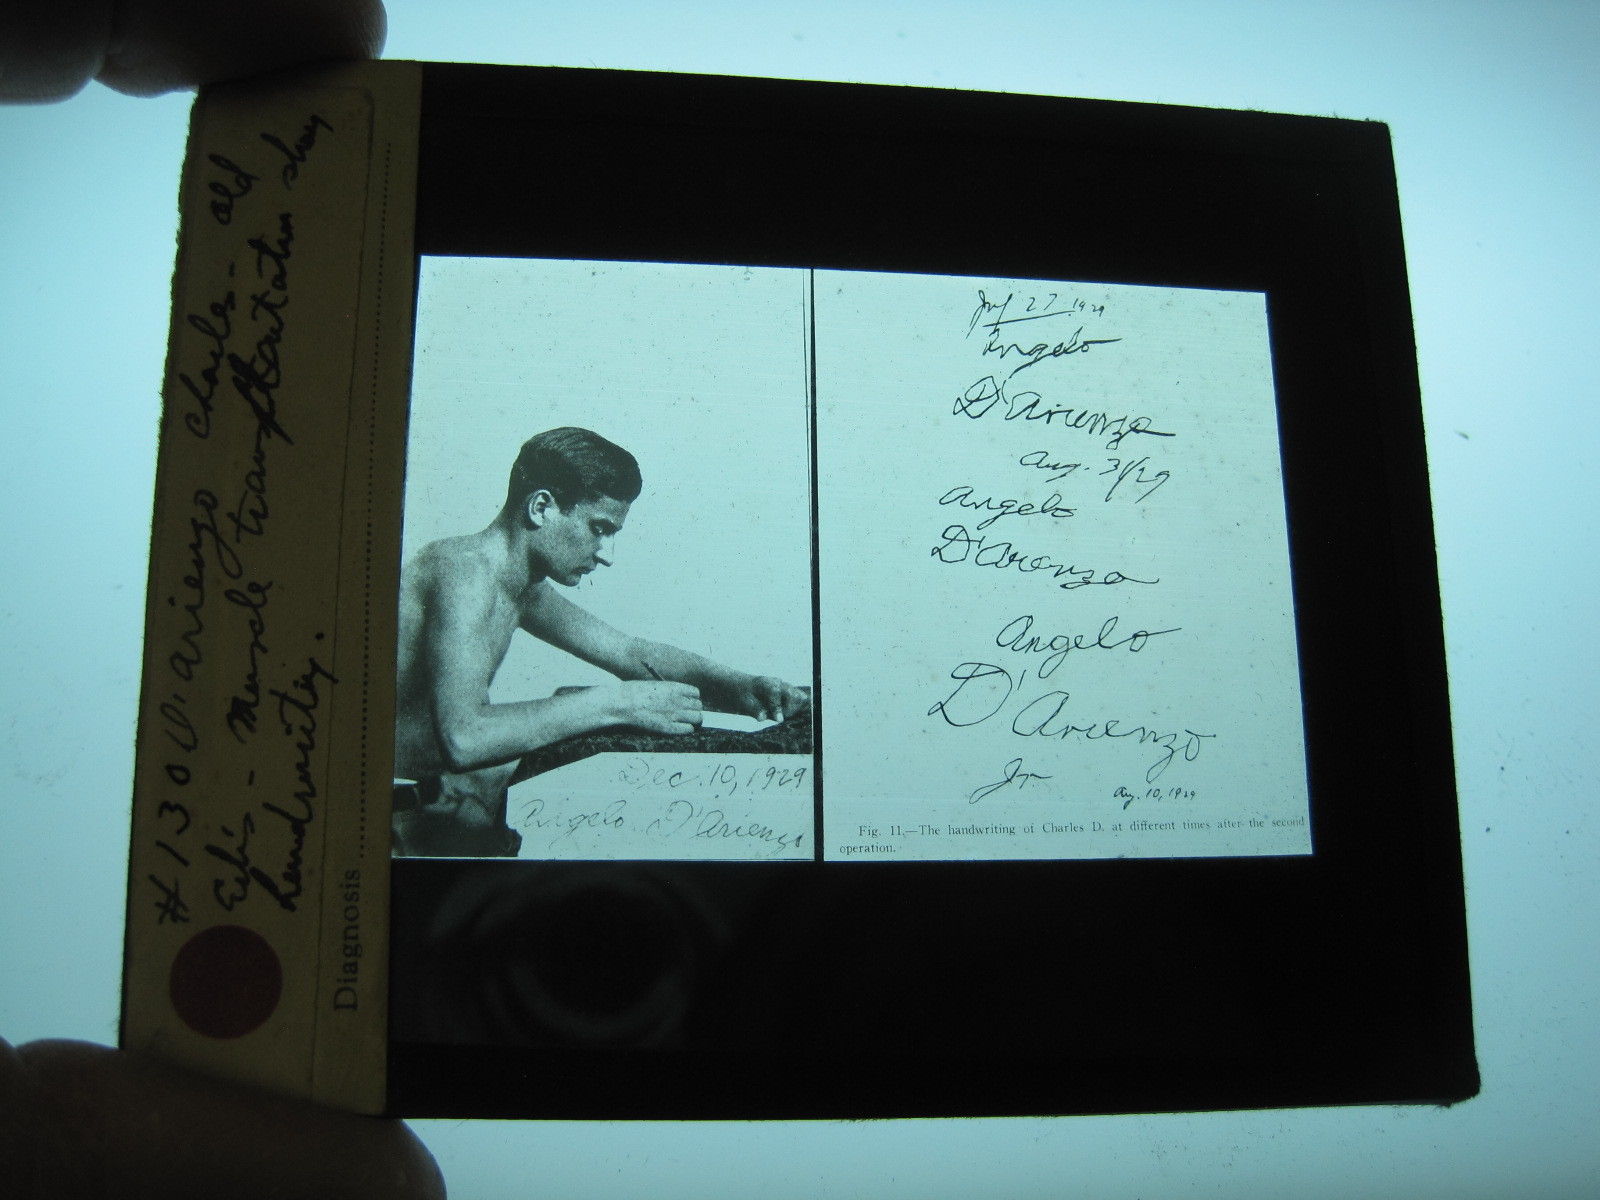 #130 D'arienzo Charles - old
Erb's - Muscle transplantation show
handwriting.
Diagnosis
Dec. 10, 1929
Angelo D'Arienzo
27 1929
Angelo
D'Arienzo
Aug. 31/29
Angelo
D'Arenzo
Angelo
D'Arienzo
Jr
Aug. 10, 1929
Fig. 11.—The handwriting of Charles D. at different times after the second
operation.